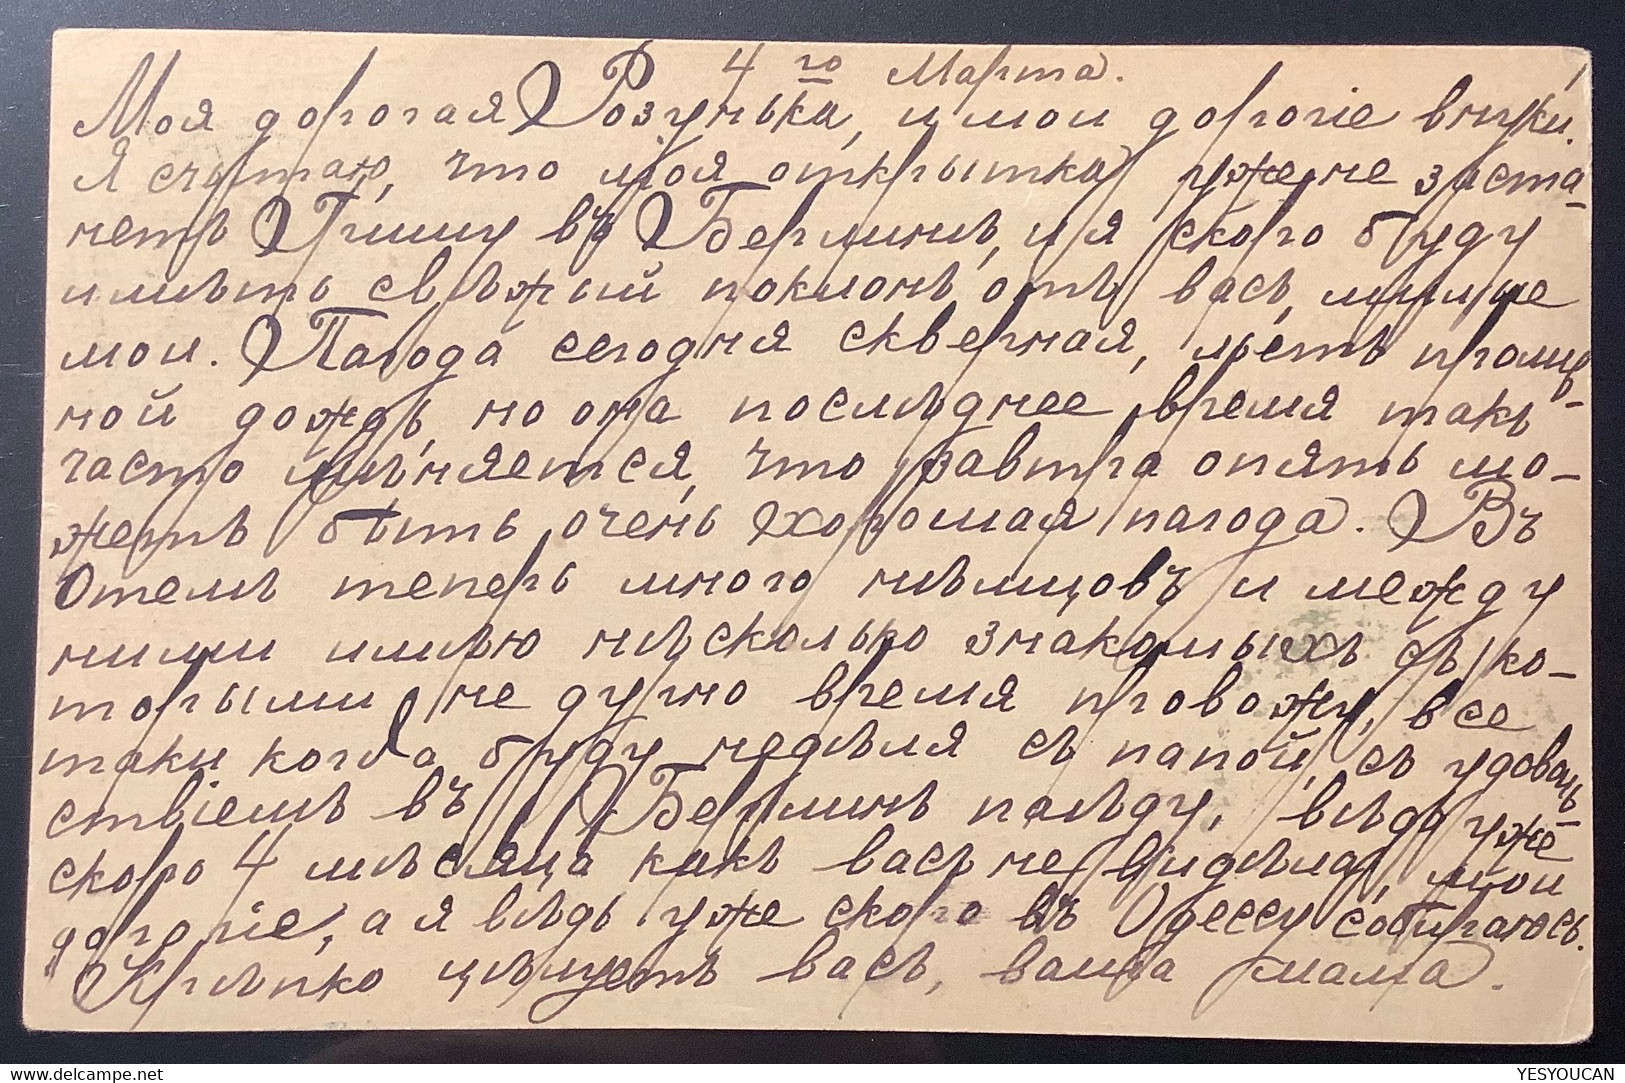 4го Марта.
Моя дорогая Розунька, и мои дорогіе внуки.
Я считаю, что моя открытка уже не заста-
нетъ Гишу въ Берлинѣ, и я скоро буду
имѣть свѣжый поклонъ отъ васъ, милые
мои. Пагода сегодня скверная, льетъ пролив-
ной дождь, но она послѣднее время такъ
часто мѣняется, что завтра опять мо-
жетъ быть очень хорошая пагода. Въ
Отелѣ теперь много нѣмцовъ и между
ними имѣю нѣсколько знакомыхъ съ ко-
торыми не дурно время провожу, все
таки когда буду недѣля съ папой, съ удоволь-
ствіемъ въ Берлинъ паѣду, вѣдь уже
скоро 4 мѣсяца какъ васъ не видѣла, мои
дорогіе, а я вѣдь уже скоро въ Одессу собираюсь.
Крѣпко цѣлуетъ васъ, ваша мама.
delcampe.net
YESYOUCAN